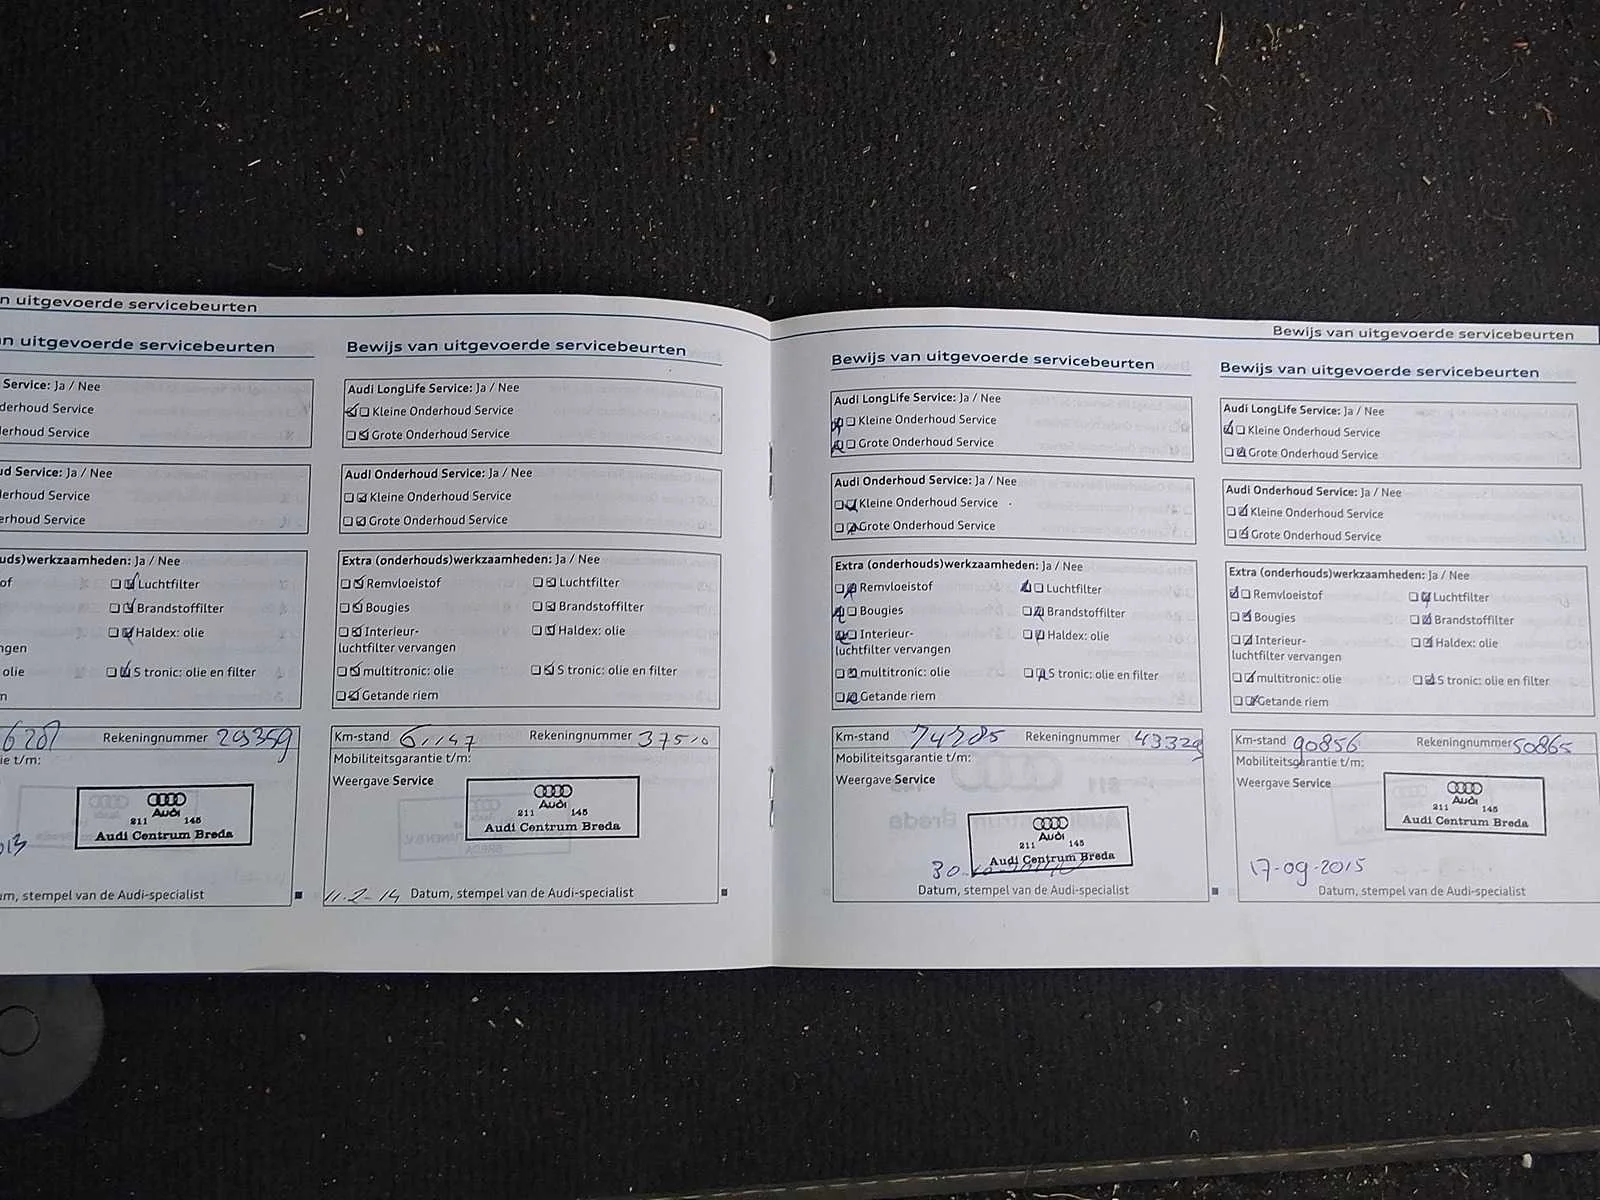 n uitgevoerde servicebeurten
an uitgevoerde servicebeurten
Service: Ja / Nee
derhoud Service
erhoud Service
ud Service: Ja / Nee
derhoud Service
erhoud Service
uds)werkzaamheden: Ja / Nee
of Luchtfilter
Brandstoffilter
Haldex: olie
ngen
olie S tronic: olie en filter
n
Rekeningnummer 29359
ie t/m:
Audi
211 145
Audi Centrum Breda
um, stempel van de Audi-specialist
Bewijs van uitgevoerde servicebeurten
Audi LongLife Service: Ja / Nee
Kleine Onderhoud Service
Grote Onderhoud Service
Audi Onderhoud Service: Ja / Nee
Kleine Onderhoud Service
Grote Onderhoud Service
Extra (onderhouds)werkzaamheden: Ja / Nee
Remvloeistof Luchtfilter
Bougies Brandstoffilter
Interieur- Haldex: olie
luchtfilter vervangen
multitronic: olie S tronic: olie en filter
Getande riem
Km-stand Rekeningnummer
Mobiliteitsgarantie t/m:
Weergave Service
Audi
211 145
Audi Centrum Breda
11-2-14 Datum, stempel van de Audi-specialist
Bewijs van uitgevoerde servicebeurten
Bewijs van uitgevoerde servicebeurten
Audi LongLife Service: Ja / Nee
Kleine Onderhoud Service
Grote Onderhoud Service
Audi Onderhoud Service: Ja / Nee
Kleine Onderhoud Service
Grote Onderhoud Service
Extra (onderhouds)werkzaamheden: Ja / Nee
Remvloeistof Luchtfilter
Bougies Brandstoffilter
Interieur- Haldex: olie
luchtfilter vervangen
multitronic: olie S tronic: olie en filter
Getande riem
Km-stand Rekeningnummer 43329
Mobiliteitsgarantie t/m:
Weergave Service
Audi
211 145
Audi Centrum Breda
Datum, stempel van de Audi-specialist
Bewijs van uitgevoerde servicebeurten
Audi LongLife Service: Ja / Nee
Kleine Onderhoud Service
Grote Onderhoud Service
Audi Onderhoud Service: Ja / Nee
Kleine Onderhoud Service
Grote Onderhoud Service
Extra (onderhouds)werkzaamheden: Ja / Nee
Remvloeistof Luchtfilter
Bougies Brandstoffilter
Interieur- Haldex: olie
luchtfilter vervangen
multitronic: olie S tronic: olie en filter
Getande riem
Km-stand 90856 Rekeningnummer 50865
Mobiliteitsgarantie t/m:
Weergave Service
Audi
211 145
Audi Centrum Breda
17-09-2015
Datum, stempel van de Audi-specialist